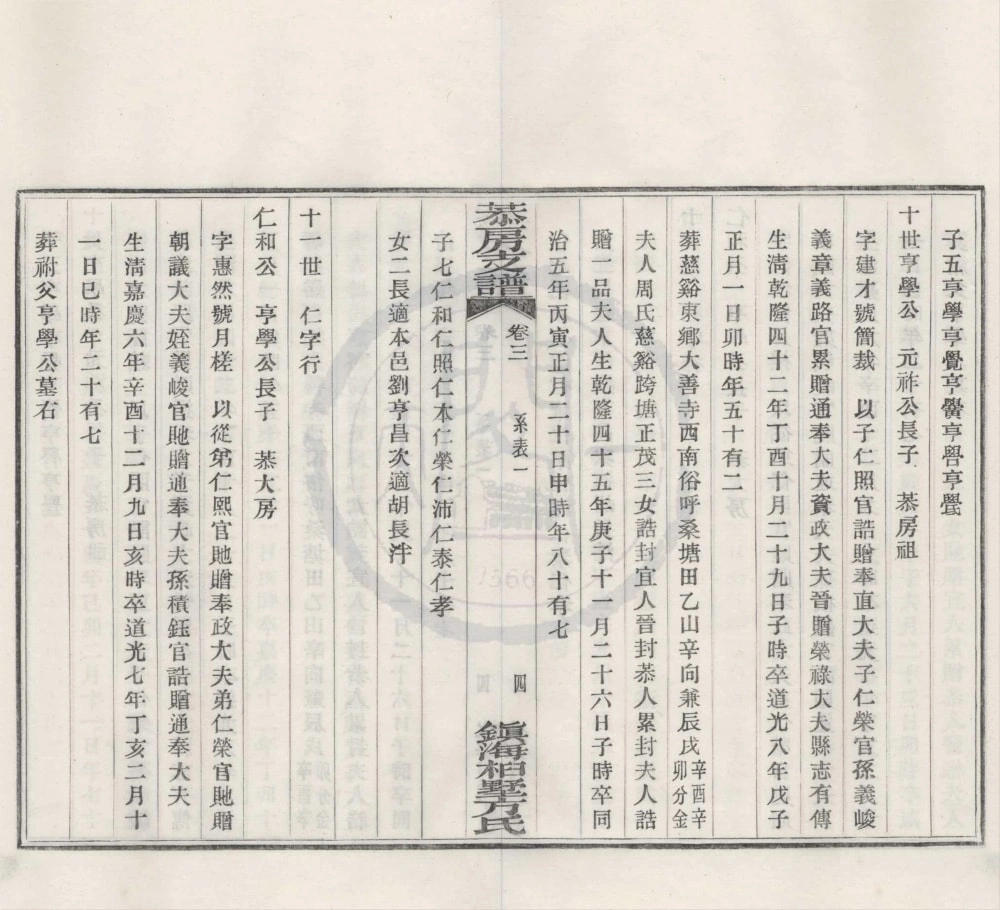 子五亨學亨覺亨黌亨嚳亨舋
十世亨學公 元祚公長子 恭房祖
字建才號簡裁 以子仁照官誥贈奉直大夫子仁榮官孫義峻
義章義路官累贈通奉大夫資政大夫晉贈榮祿大夫縣志有傳
生清乾隆四十二年丁酉十月二十九日子時卒道光八年戊子
正月一日卯時年五十有二
葬慈谿東鄉大善寺西南俗呼桑塘田乙山辛向兼辰戌辛酉辛卯分金
夫人周氏慈谿跨塘正茂三女誥封宜人晉封恭人累封夫人誥
贈一品夫人生乾隆四十五年庚子十一月二十六日子時卒同
治五年丙寅正月二十日申時年八十有七
恭房支譜 卷三 系表一 四 鎮海柏墅方氏
子七仁和仁照仁本仁榮仁沛仁泰仁孝
女二長適本邑劉亨昌次適胡長泮
十一世 仁字行
仁和公 亨學公長子 恭大房
字惠然號月槎 以從弟仁熙官貤贈奉政大夫弟仁榮官貤贈
朝議大夫姪義峻官貤贈通奉大夫孫積鈺官誥贈通奉大夫
生清嘉慶六年辛酉十二月九日亥時卒道光七年丁亥二月十
一日巳時年二十有七
葬祔父亨學公墓右
1566